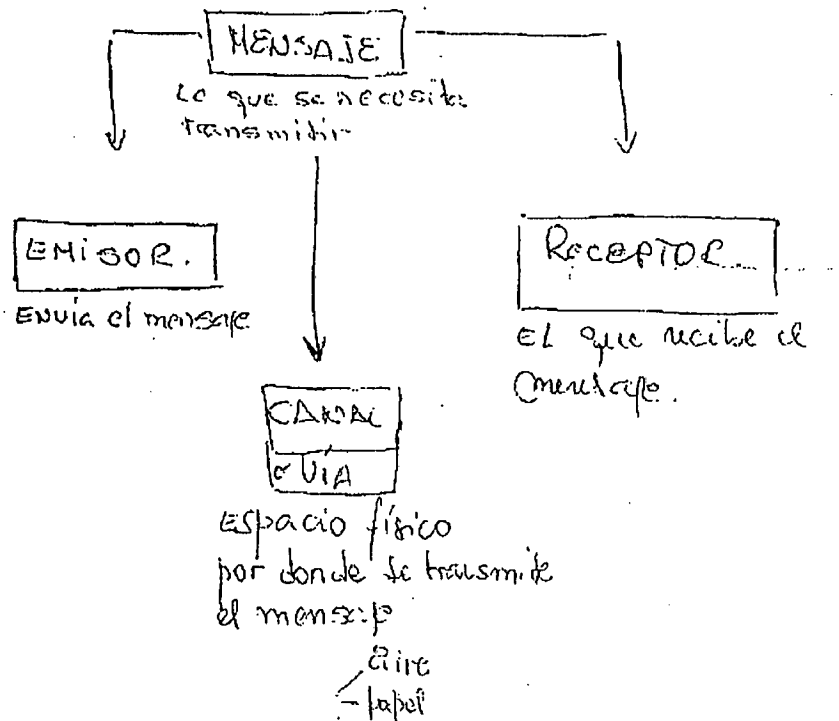 MENSAJE
Lo que se necesita
transmitir
EMISOR.
Envía el mensaje
RECEPTOR
EL que recibe el
mensaje.
CANAL
o VÍA
Espacio físico
por donde se transmite
el mensaje
- aire
- papel